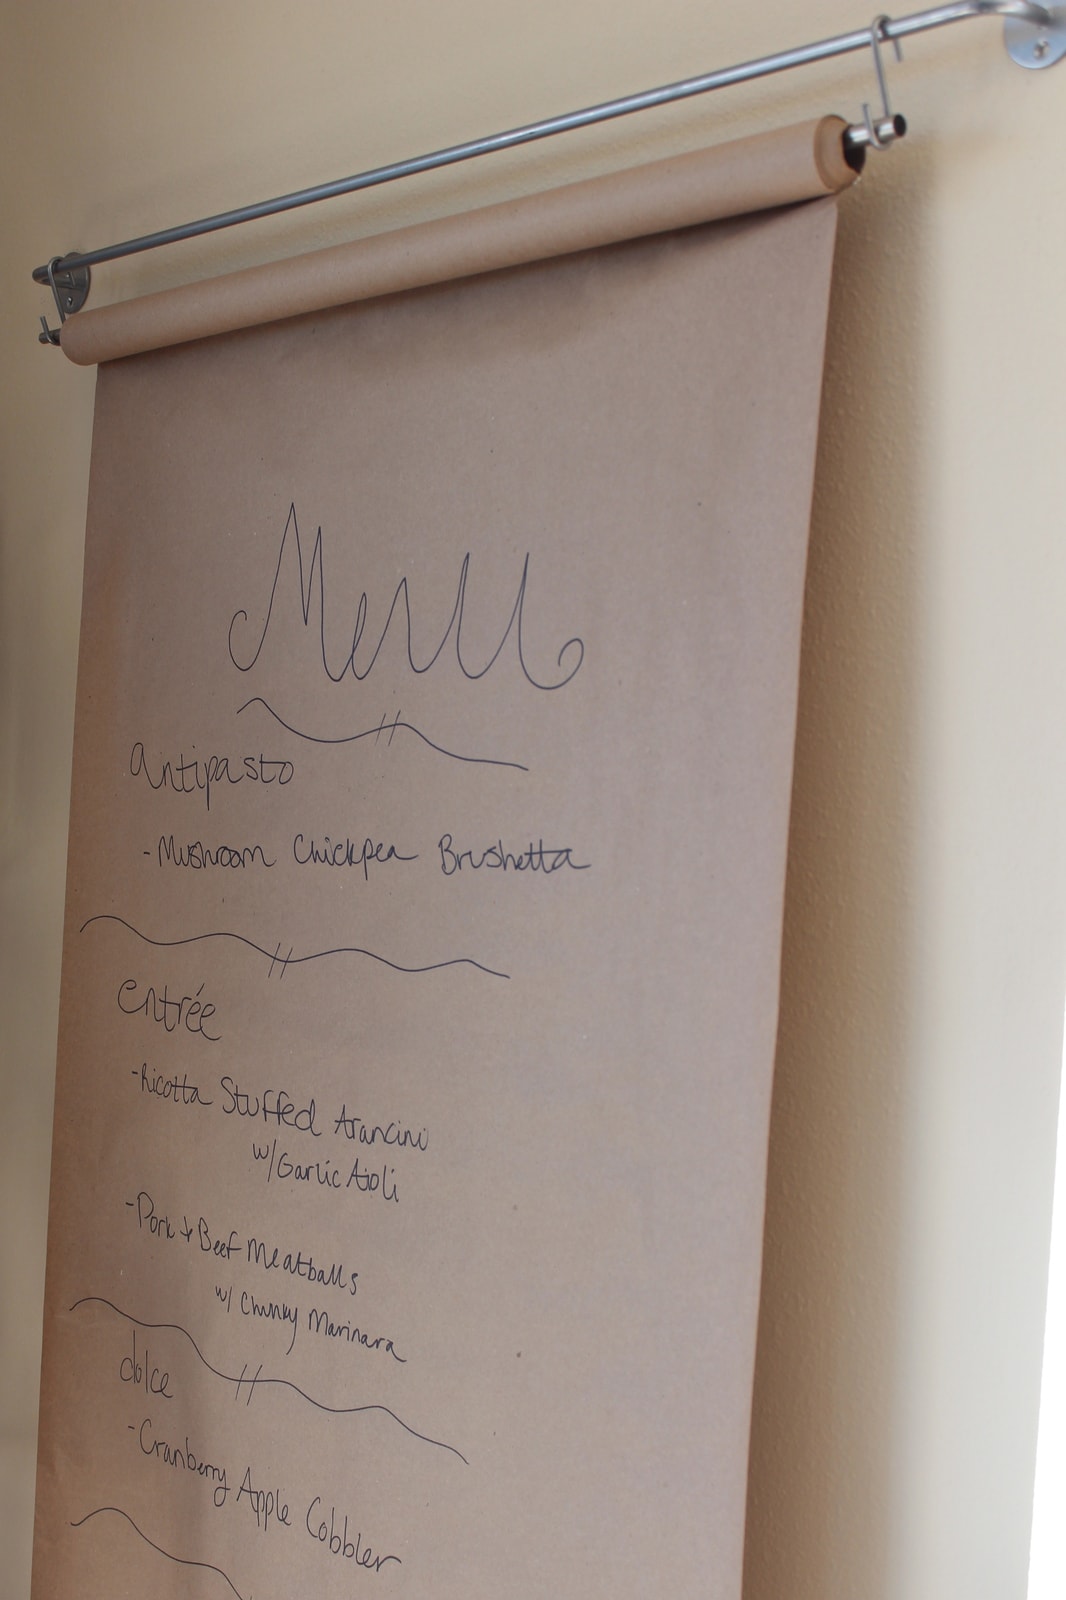 Menu
antipasto
- Mushroom Chickpea Brushetta
entrée
- Ricotta Stuffed Arancini
w/ Garlic Aioli
- Pork + Beef Meatballs
w/ Chunky Marinara
dolce
- Cranberry Apple Cobbler